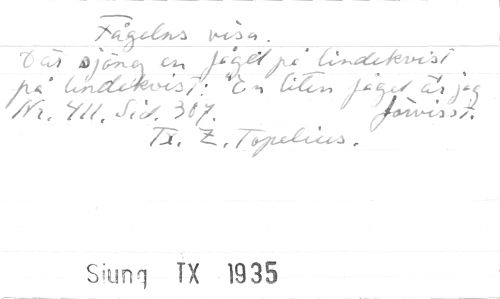 Fågelns visa.
Där sjöng en fågel på lindekvist
på lindekvist: "En liten fågel är jag
Nr. 411. Sid. 307. förvisst.
Tx. Z. Topelius.
Siung TX 1935